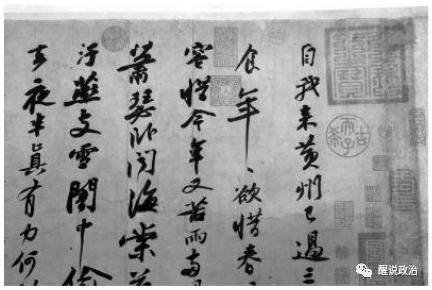 自我來黃州已過三
食年〻欲惜春〻
容惜今年又苦雨兩月
蕭瑟卧聞海棠花
汙燕支雪闇中偷
去夜半真有力何
醒说政治